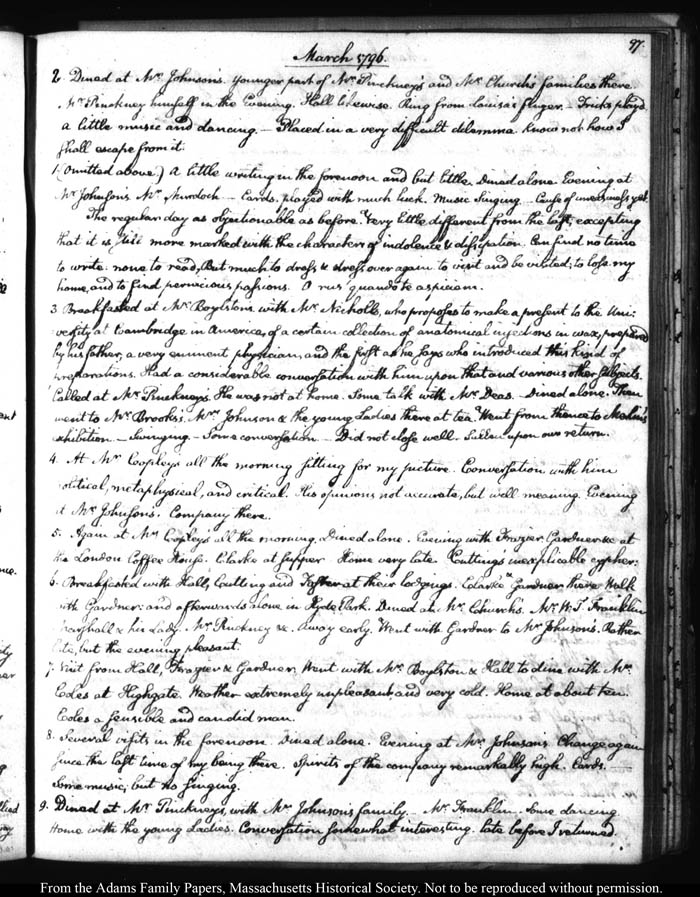 97.
March 1796.
2. Dined at Mr. Johnson's. Younger part of Mr. Pinckney's and Mr. Church's families there.
Mr. Pinckney himself in the Evening. Hall likewise. Ring from Louisa's finger. — Tricks play'd.
A little music and dancing. — Placed in a very difficult dilemma. Know not how I
shall escape from it.
1. (Omitted above.) A little writing in the forenoon and but little. Dined alone. Evening at
Mr. Johnson's. Mr. Murdoch — Cards, played with much luck. Music. Singing. — Cause of uneasiness yet.
The regular day as objectionable as before. Very little different from the last, excepting
that it is still more marked with the characters of indolence & dissipation. Can find no time
to write. none to read, But much to dress & dress over again to visit and be visited; to lose my
home, and to find pernicious passions. O rus! quando te aspiciam.
3. Breakfasted at Mr. Boylston's with Mr. Nicholls, who proposes to make a present to the Uni:
versity at Cambridge in America, of a certain collection of anatomical injections in wax, prepared
by his father, a very eminent physician, and the first as he says who introduced this kind of
preparations. Had a considerable conversation with him upon that and various other subjects.
Called at Mr. Pinckney's. He was not at home. Some talk with Mr. Deas. Dined alone. Then
went to Mr. Brooks's. Mrs. Johnson & the young Ladies there at tea. Went from thence to
exhibition. — Swinging. — Some conversation. — Did not close well. Sullen upon our return.
4. At Mr. Copley's all the morning sitting for my picture. Conversation with him
political, metaphysical, and critical. His opinions not accurate, but well meaning. Evening
at Mr. Johnson's. Company there.
5. Again at Mr. Copley's all the morning. Dined alone. Evening with Frazier, Gardner &c at
the London Coffee House. Clarke at supper. Home very late. Cutting's inexplicable cypher.
6. Breakfasted with Hall, Cutting and at their lodgings. Clarke & Gardner there. Walk
with Gardner: and afterwards alone in Hyde Park. Dined at Mr. Church's. Mr. W. T. Franklin
Marshall & his Lady. Mr. Pinckney &c. Away early. Went with Gardner to Mr. Johnson's. Rather
late, but the evening pleasant.
7. Visit from Hall, Frazier & Gardner, Went with Mr. Boylston & Hall to dine with Mr.
Cooles at Highgate. Weather extremely unpleasant, and very cold. Home at about ten.
a sensible and candid man.
8. Several visits in the forenoon. Dined alone. Evening at Mr. Johnson's. Change again
since the last time of my being there. Spirits of the company remarkably high. Cards. —
Some music, but no singing.
9. Dined at Mr. Pinckney's, with Mr. Johnson's family. — Mr. Franklin. Some dancing.
Home with the young Ladies. Conversation somewhat interesting. Late before I returned.
From the Adams Family Papers, Massachusetts Historical Society. Not to be reproduced without permission.